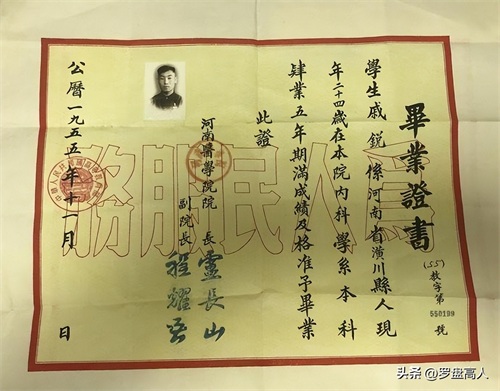 畢業證書
(55)教字第550199號
學生戚銳係河南省潢川縣人現
年二十四歲在本院內科學系本科
肄業五年期滿成績及格准予畢業
此證
河南醫學院院長靈長山
副院長程耀吾
公曆一九五五年十一月 日
為人民服務
头条@罗盘高人